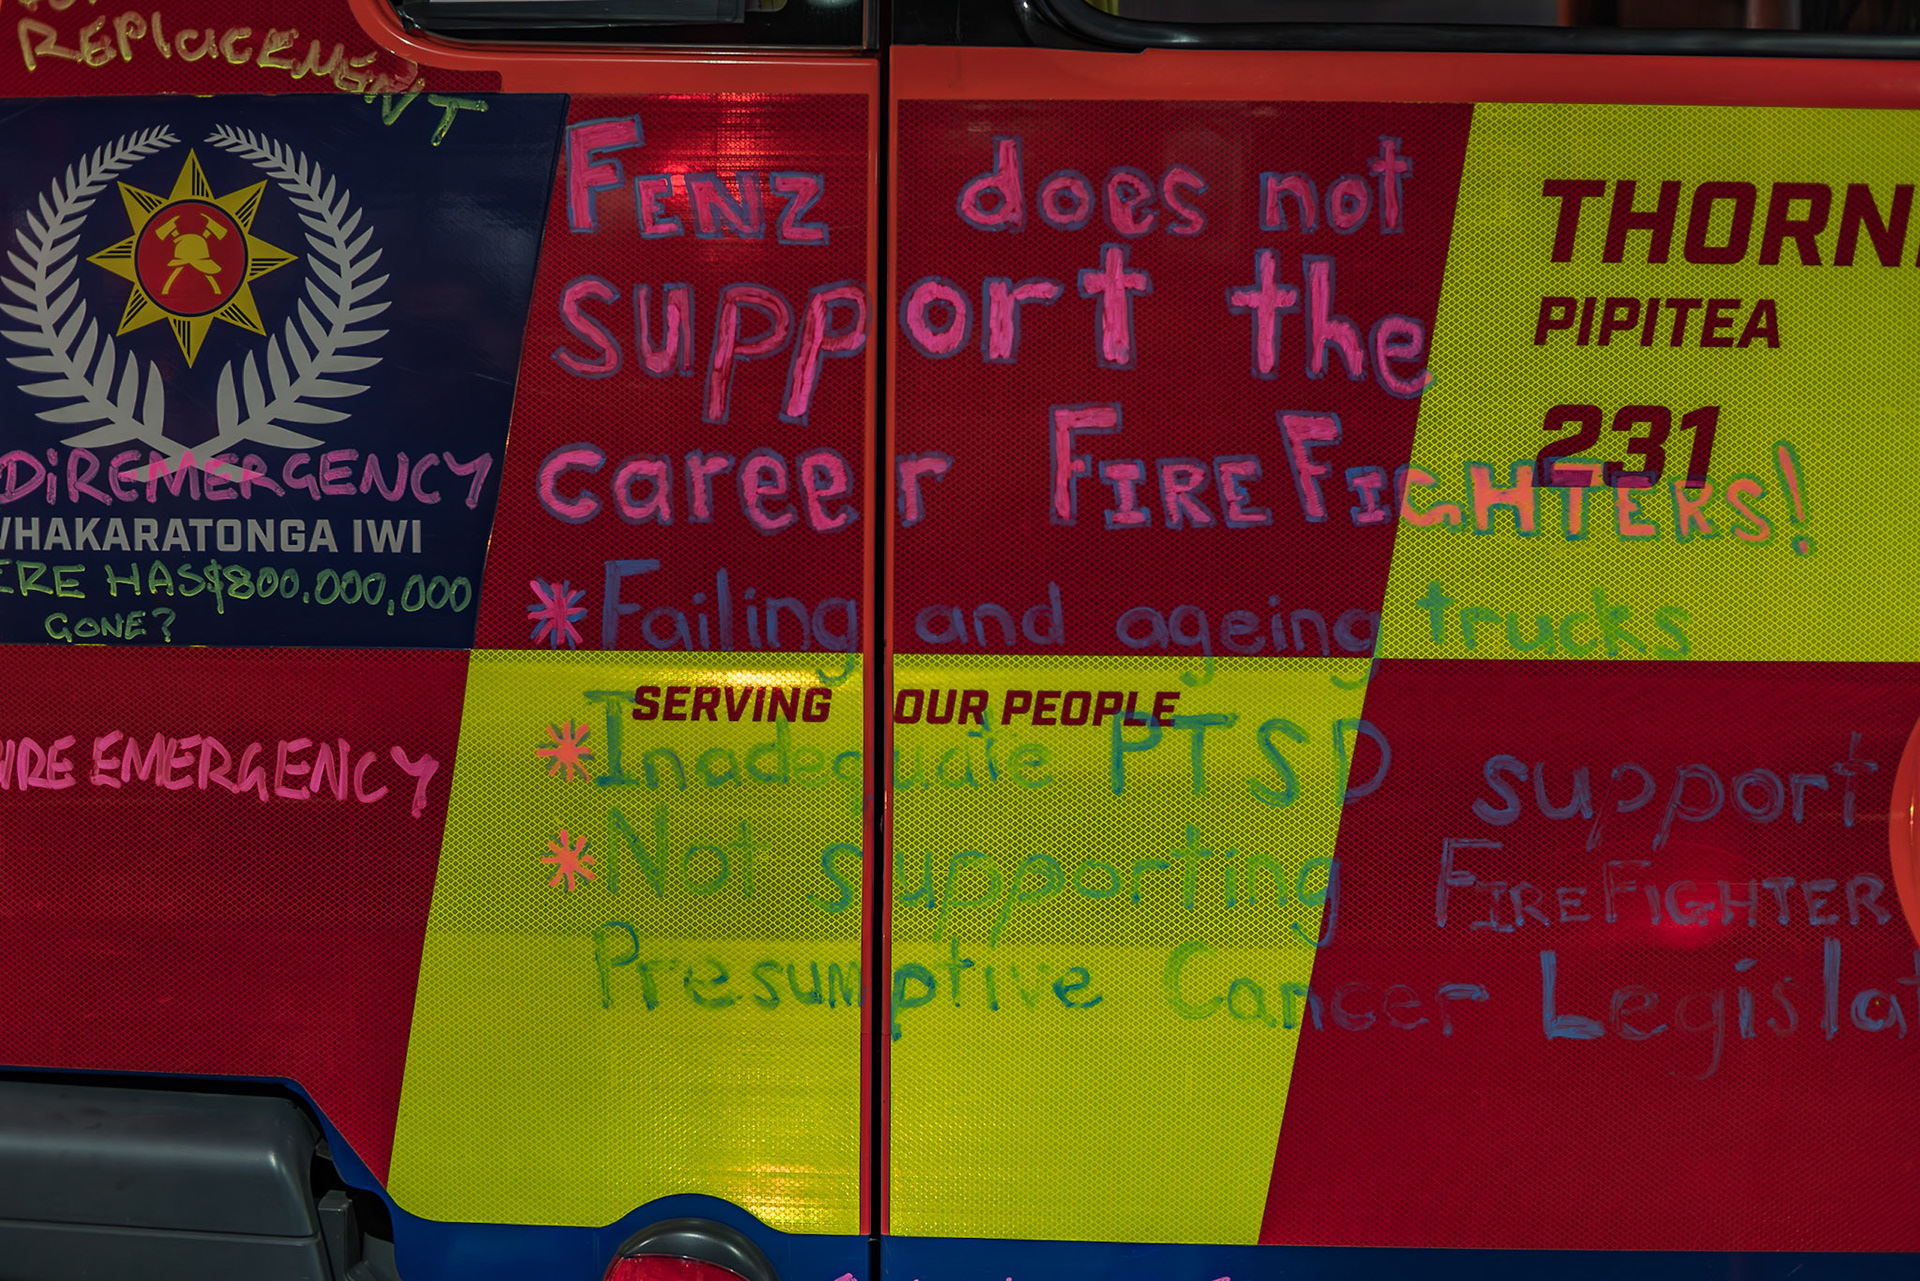 REPLACEMENT
FENZ does not
support the
career FIREFIGHTERS!
*Failing and ageing trucks
*Inadequate PTSD support
*Not supporting FIREFIGHTER
Presumptive Cancer Legislat
DiREMERGENCY
WHAKARATONGA IWI
ERE HAS $800.000,000
GONE?
IRE EMERGENCY
SERVING OUR PEOPLE
THORN
PIPITEA
231